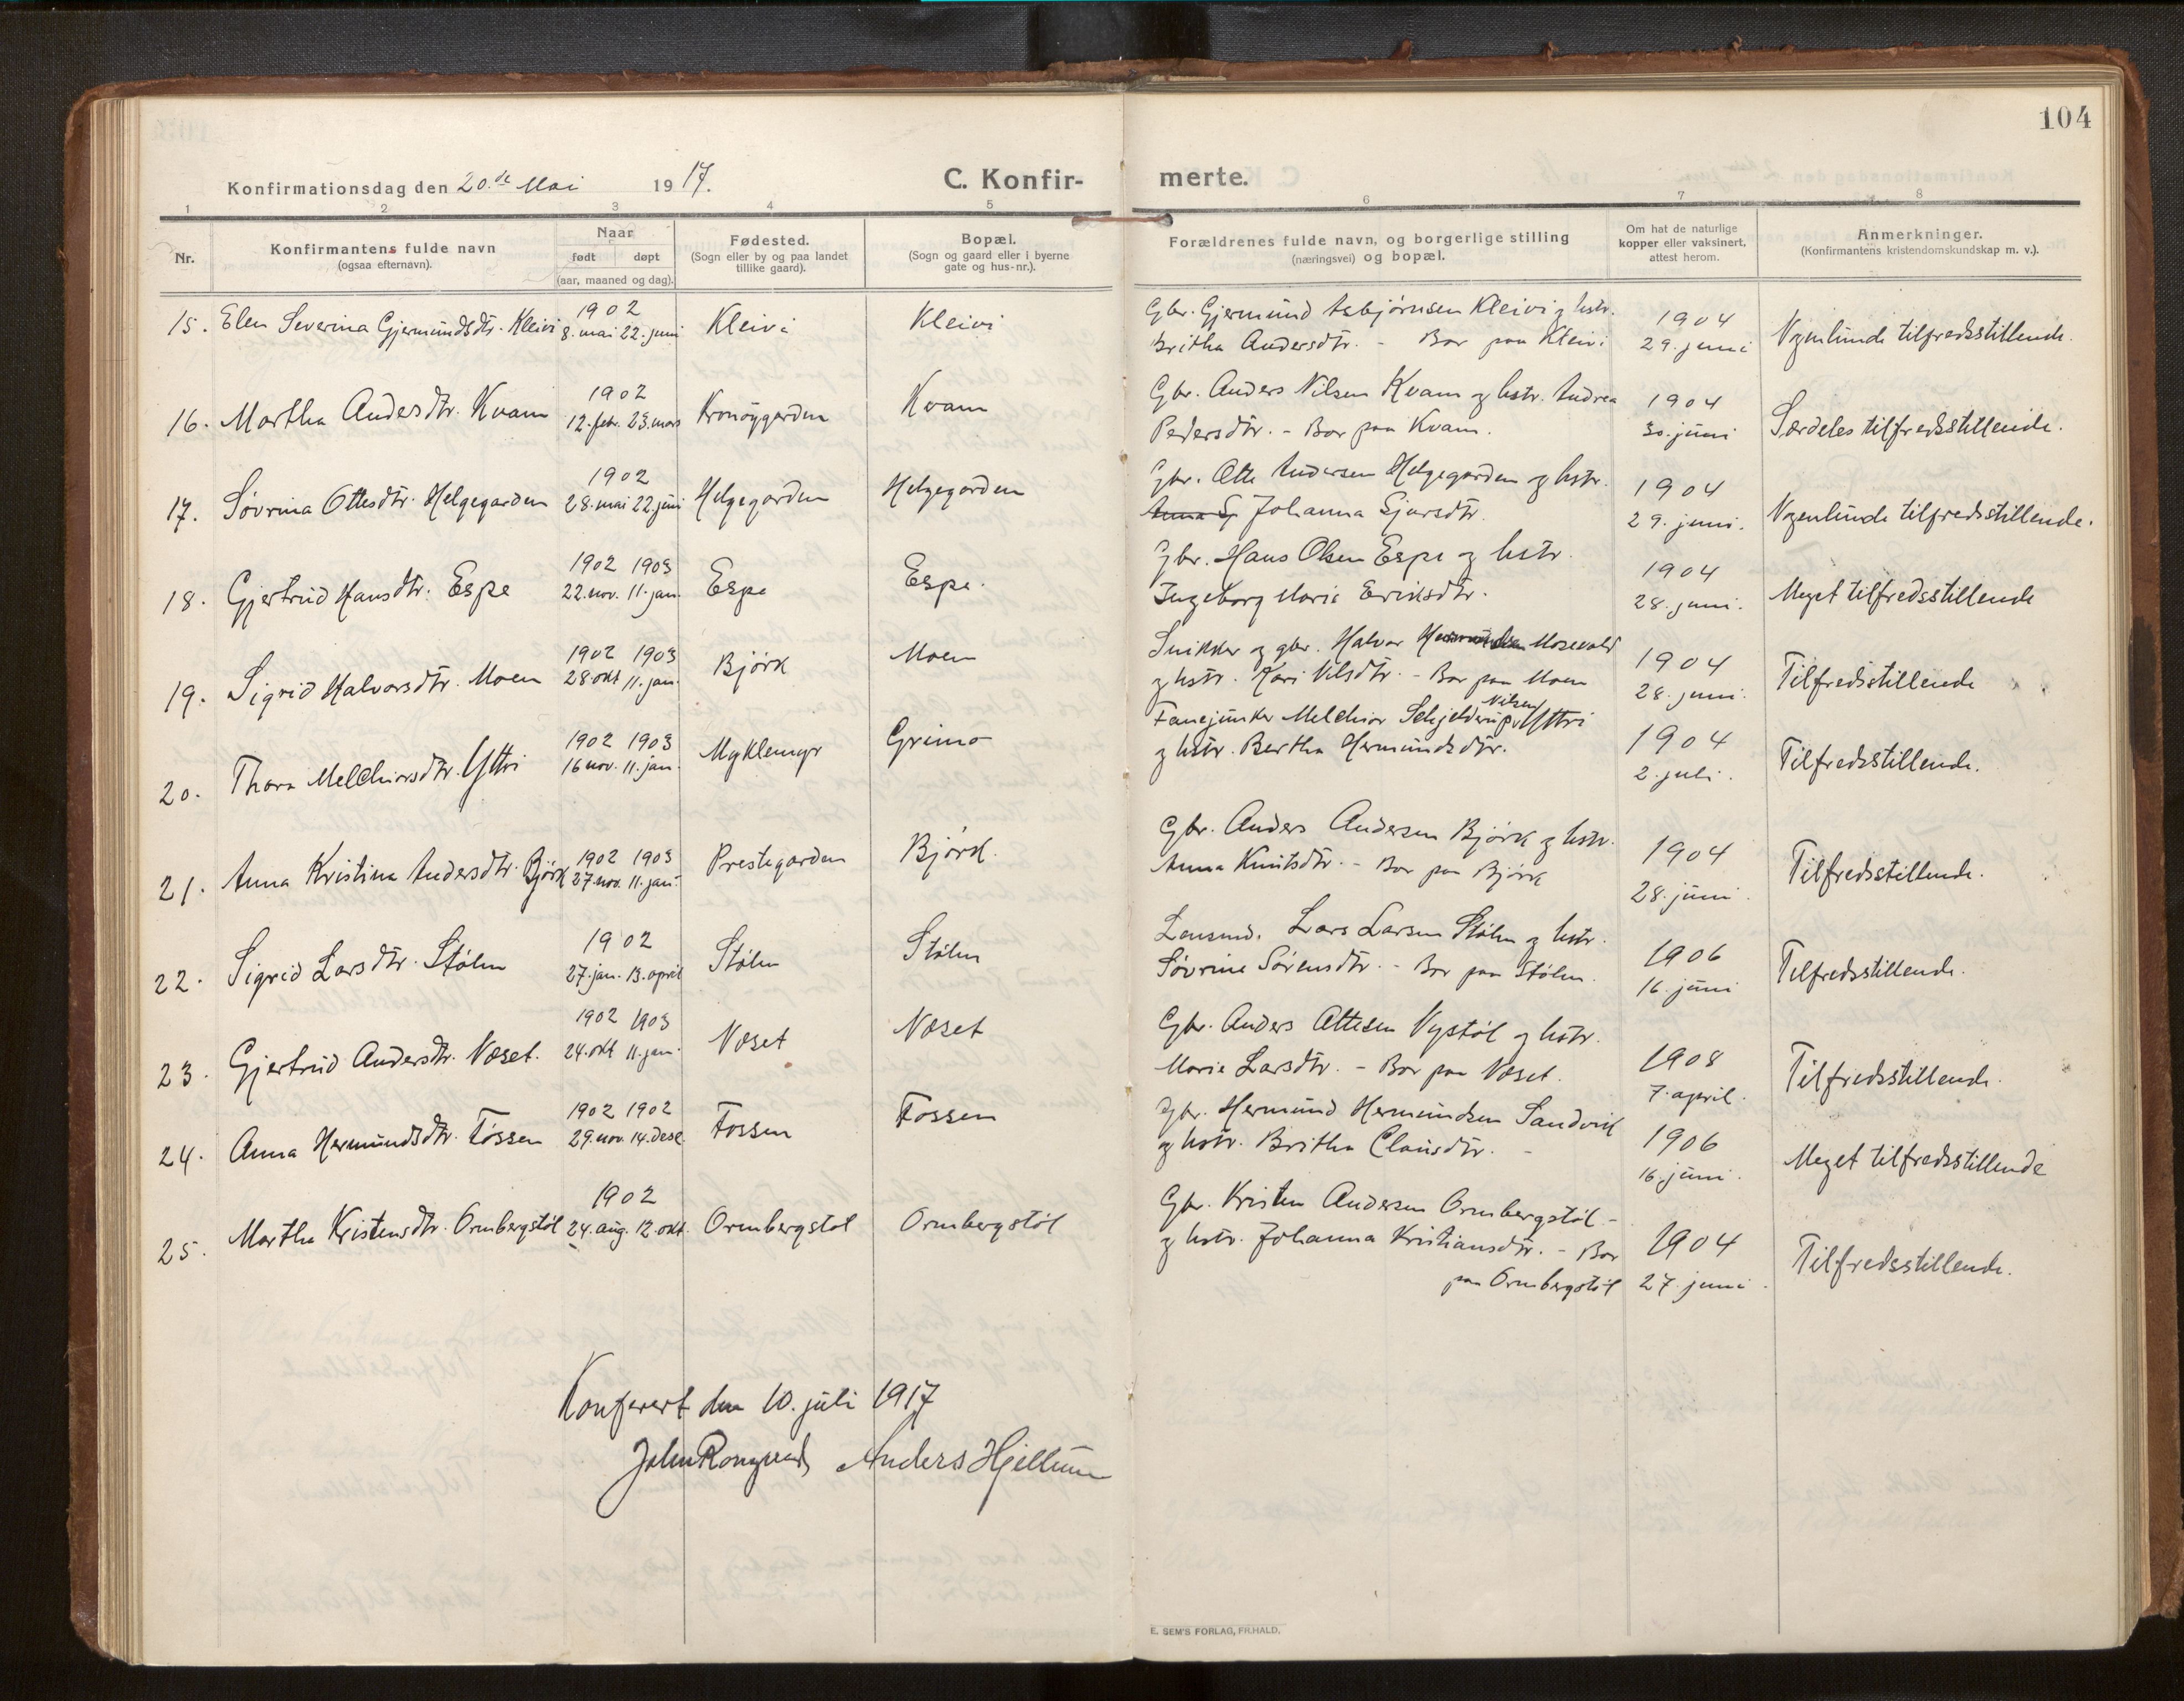 104
Konfirmationsdag den 20.de Mai 1917. C. Konfir- merte.
1 2 3 4 5 6 7 8
Nr. Konfirmantens fulde navn (ogsaa efternavn). Naar født døpt (aar, maaned og dag). Fødested. (Sogn eller by og paa landet tillike gaard). Bopæl. (Sogn og gaard eller i byerne gate og hus-nr.). Forældrenes fulde navn, og borgerlige stilling (næringsvei) og bopæl. Om hat de naturlige kopper eller vaksinert, attest herom. Anmerkninger. (Konfirmantens kristendomskundskap m. v.).
15. Elen Severina Gjermundsdtr. Kleivi 1902 8. mai 22. juni Kleivi Kleivi
Gbr. Gjermund Asbjørnsen Kleivi og hstr.
Britha Andersdtr. - Bor paa Kleivi
1904 29. juni Nogenlunde tilfredsstillende.
16. Martha Andersdtr. Kvam 1902 12. febr. 23. mars Kronøygarden Kvam
Gbr. Anders Nilsen Kvam og hstr. Andrea
Pedersdtr. - Bor paa Kvam.
1904 30. juni Særdeles tilfredsstillende.
17. Søvrina Ottesdtr. Helgegarden 1902 28. mai 22. juni Helgegarden Helgegarden
Gbr. Otte Andersen Helgegarden og hstr.
Anna Johanna Sjursdtr.
1904 29. juni. Nogenlunde tilfredsstillende.
18. Gjertrud Hansdtr. Espe 1902 1903 22. nov. 11. jan. Espe Espe.
Gbr. Hans Olsen Espe og hstr.
Ingeborg Marie Eriksdtr.
1904 28. juni. Meget tilfredsstillende
19. Sigrid Halvorsdtr. Moen 1902 1903 28. okt 11. jan. Bjørk Moen
Snikker og gbr. Halvor Mosevold
og hstr. Kari Nilsdtr. - Bor paa Moen
1904 28. juni. Tilfredsstillende
20. Thora Melchiorsdtr. Yttri 1902 1903 16 nov. 11. jan. Myklemyr Grimo
Fanejunker Melchior Schjelderup Nilsen Yttri
og hstr. Bertha Hermundsdtr.
1904 2. juli. Tilfredsstillende.
21. Anna Kristina Andersdtr. Bjørk 1902 1903 27. nov. 11. jan. Prestegarden Bjørk.
Gbr. Anders Andersen Bjørk og hstr.
Anna Knutsdtr. - Bor paa Bjørk
1904 28. juni. Tilfredsstillende.
22. Sigrid Larsdtr. Stølen 1902 27. jan. 13. april Stølen Stølen
Lensmd. Lars Larsen Stølen og hstr.
Søvrine Sørensdtr. - Bor paa Stølen.
1906 16. juni Tilfredsstillende.
23. Gjertrud Andersdtr. Næset. 1902 1903 24. okt 11. jan. Næset Næset
Gbr. Anders Ottesen Nystøl og hstr.
Marie Larsdtr. - Bor paa Næset.
1908 7. april. Tilfredsstillende.
24. Anna Hermundsdtr. Fossen 1902 1902 29. nov. 14. dese. Fossen Fossen
Gbr. Hermund Hermundsen Sandvik
og hstr. Britha Clausdtr. -
1906 16. juni. Meget tilfredsstillende
25. Martha Kristensdtr. Ormbergstøl 1902 24. aug. 12. okt. Ormbergstøl Ormbergstøl
Gbr. Kristen Andersen Ormbergstøl -
og hstr. Johanna Kristiansdtr. - Bor
paa Ormbergstøl
1904 27. juni. Tilfredsstillende.
Konferert den 10. juli 1917
John Anders Hjellum
E. SEM'S FORLAG, FR.HALD.